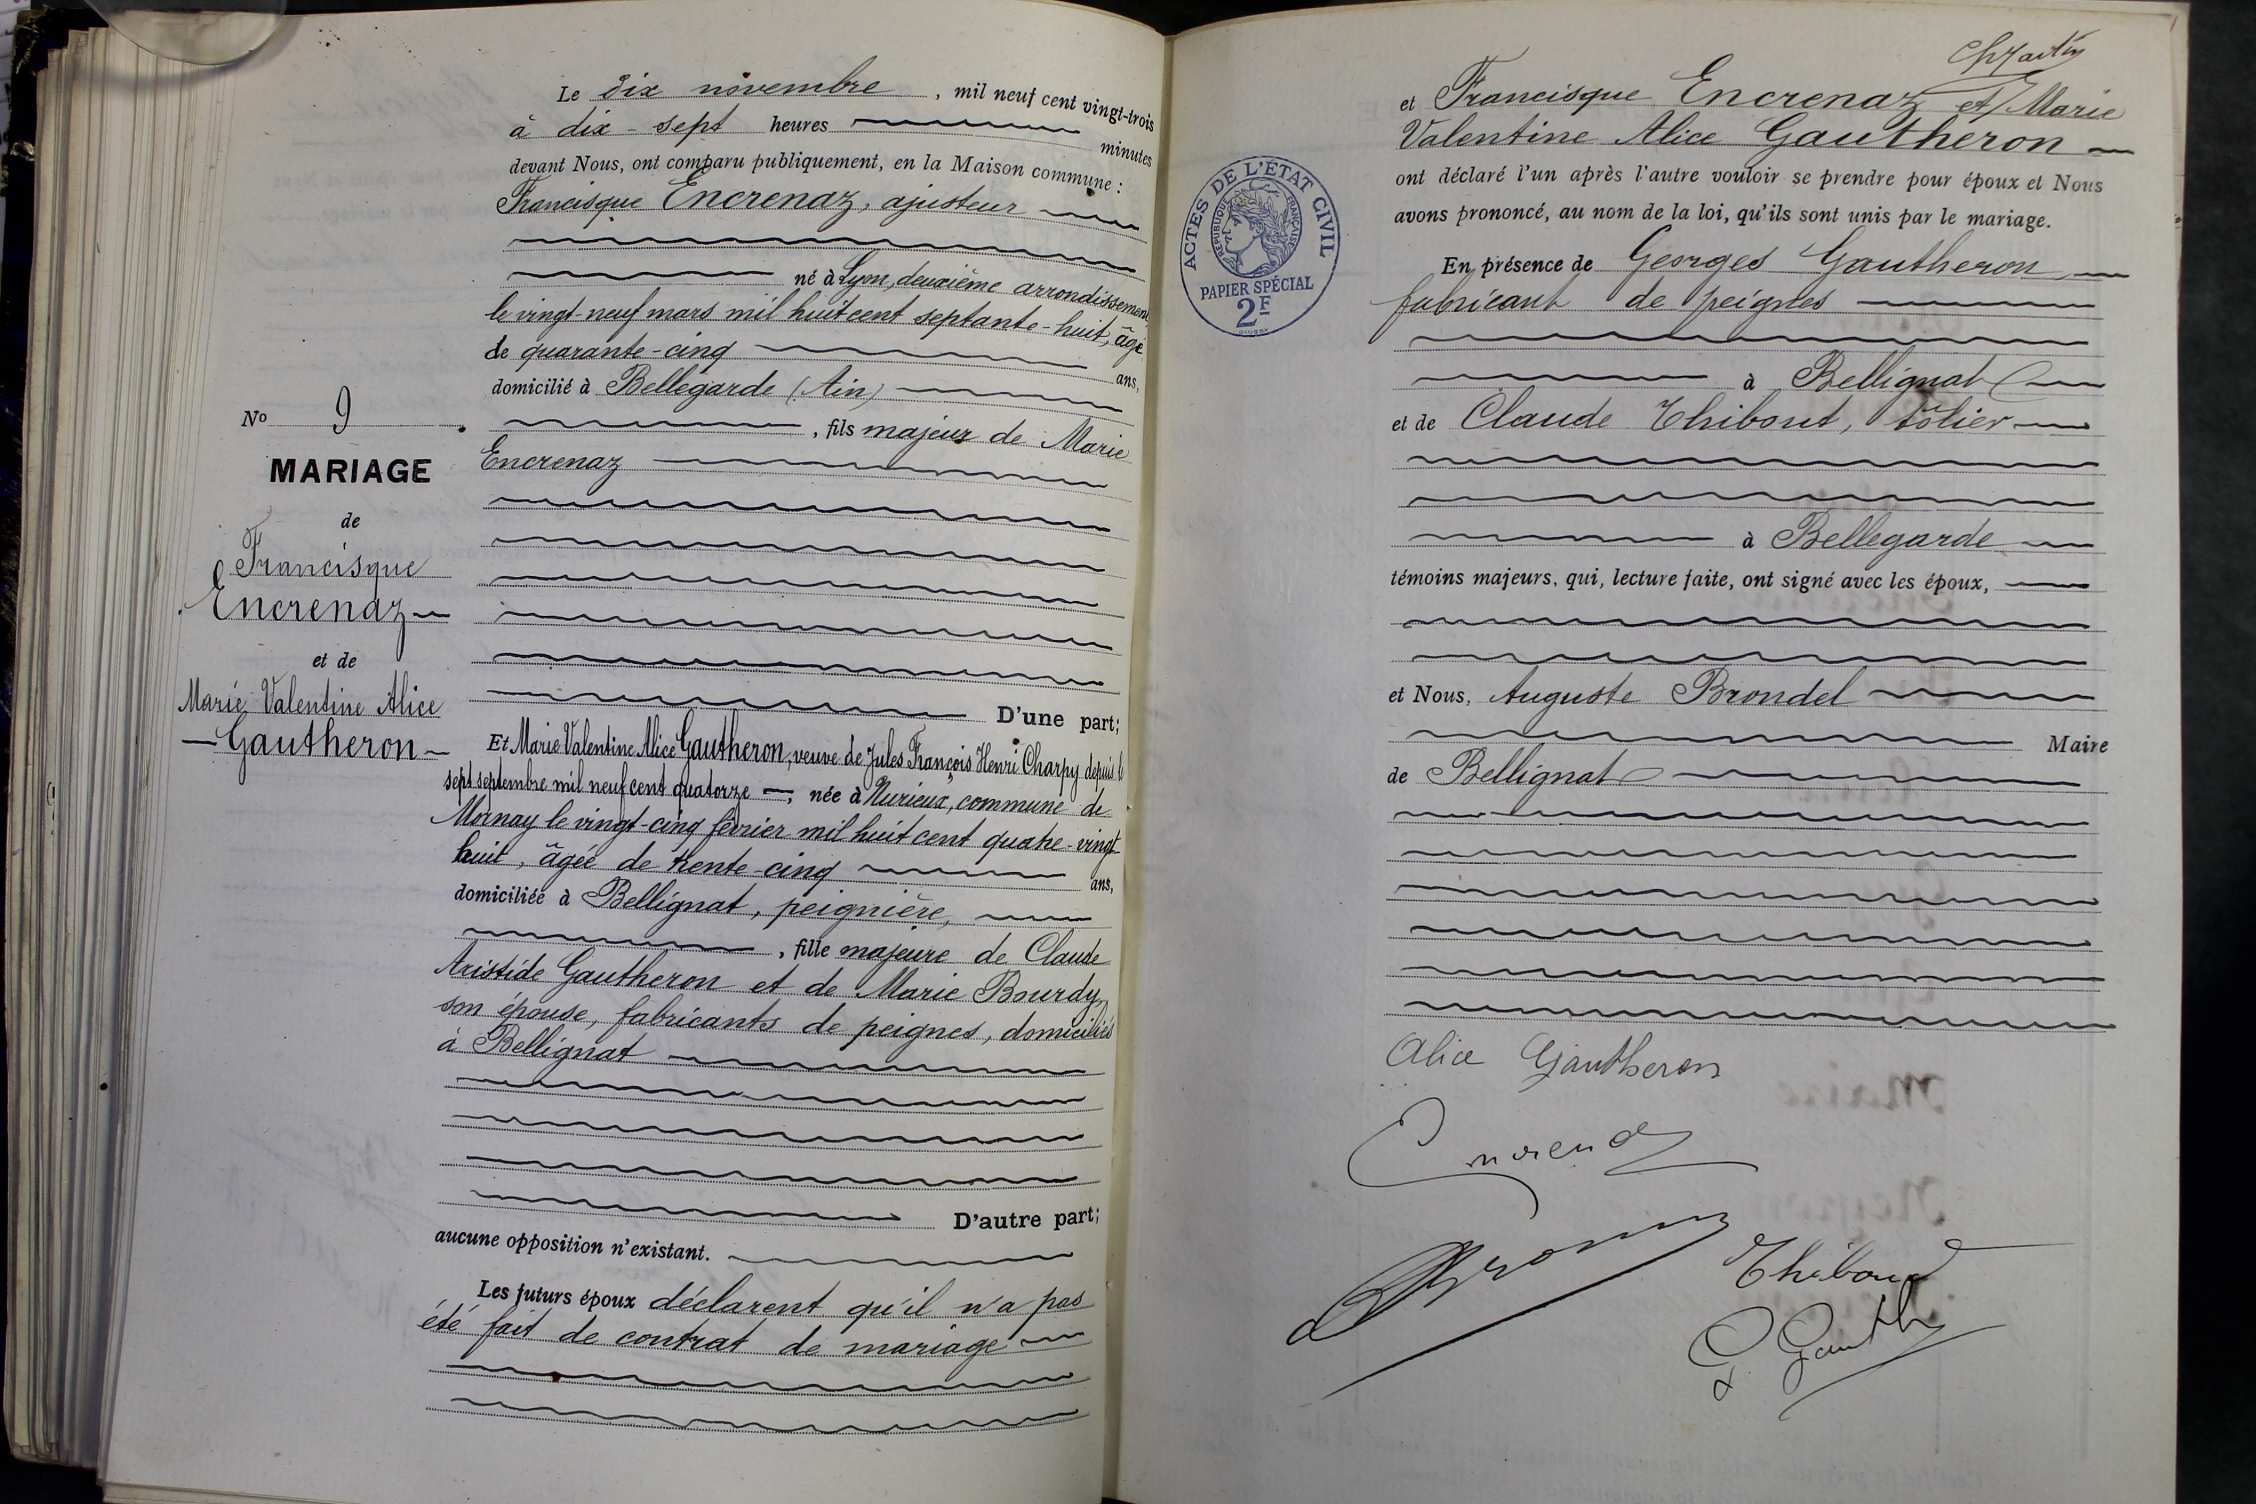 Le dix novembre, mil neuf cent vingt-trois
à dix-sept heures minutes
devant Nous, ont comparu publiquement, en la Maison commune :
Francisque Encrenaz, ajusteur
né à Lyon, deuxième arrondissement
le vingt-neuf mars mil huit cent septante-huit, âgé
de quarante-cinq ans,
domicilié à Bellegarde (Ain)
, fils majeur de Marie
Encrenaz
D'une part;
Et Marie Valentine Alice Gautheron, veuve de Jules François Henri Charpy depuis le
sept septembre mil neuf cent quatorze —, née à Nurieux, commune de
Mornay le vingt-cinq février mil huit cent quatre-vingt
huit, âgée de trente-cinq ans,
domiciliée à Bellignat, peignière,
, fille majeure de Claude
Aristide Gautheron et de Marie Bourdy
son épouse, fabricants de peignes, domiciliés
à Bellignat
D'autre part;
aucune opposition n'existant.
Les futurs époux déclarent qu'il n'a pas
été fait de contrat de mariage
No 9
MARIAGE
de
Francisque
Encrenaz
et de
Marie Valentine Alice
Gautheron
et Francisque Encrenaz et Marie
Valentine Alice Gautheron
ont déclaré l'un après l'autre vouloir se prendre pour époux et Nous
avons prononcé, au nom de la loi, qu'ils sont unis par le mariage.
En présence de Georges Gautheron,
fabricant de peignes
à Bellignat
et de Claude Thibout, tôlier
à Bellegarde
témoins majeurs, qui, lecture faite, ont signé avec les époux,
et Nous, Auguste Brondel
Maire
de Bellignat
Alice Gautheron
G. Gauth
ACTES DE L'ÉTAT CIVIL
RÉPUBLIQUE FRANÇAISE
PAPIER SPÉCIAL
2F